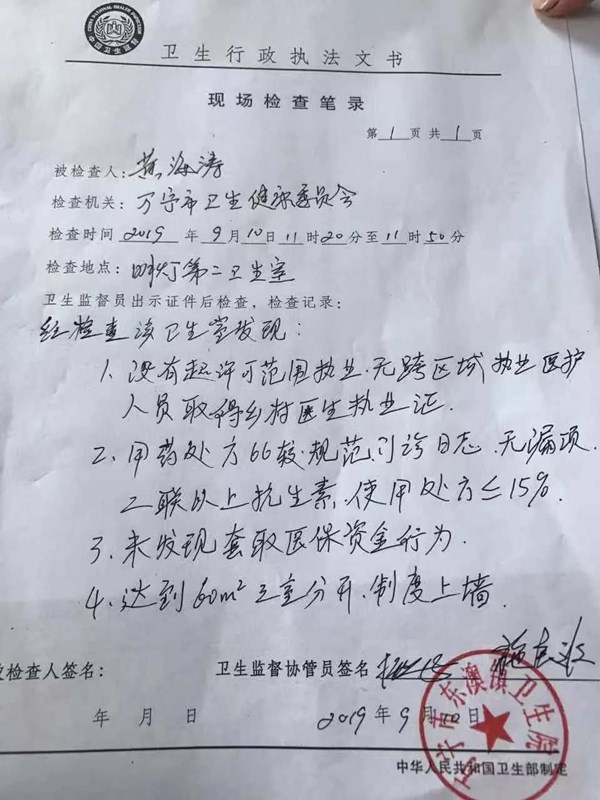 卫生行政执法文书
现场检查笔录
第1页 共1页
被检查人：黄海涛
检查机关：万宁市卫生健康委员会
检查时间 2019 年 9月10日11时20分至11时50分
检查地点：明灯第二卫生室
卫生监督员出示证件后检查，检查记录：
经检查该卫生室发现：
1、没有起许可范围执业.无跨区域执业医护
人员取得乡村医生执业证.
2、用药处方66较规范门诊日志、无漏项.
二联以上抗生素、使用处方≤15%.
3、未发现套取医保资金行为.
4、达到60m²三室分开.制度上墙.
被检查人签名： 卫生监督协管员签名
年 月 日 2019年9月10日
市东澳镇卫生院
中华人民共和国卫生部制定